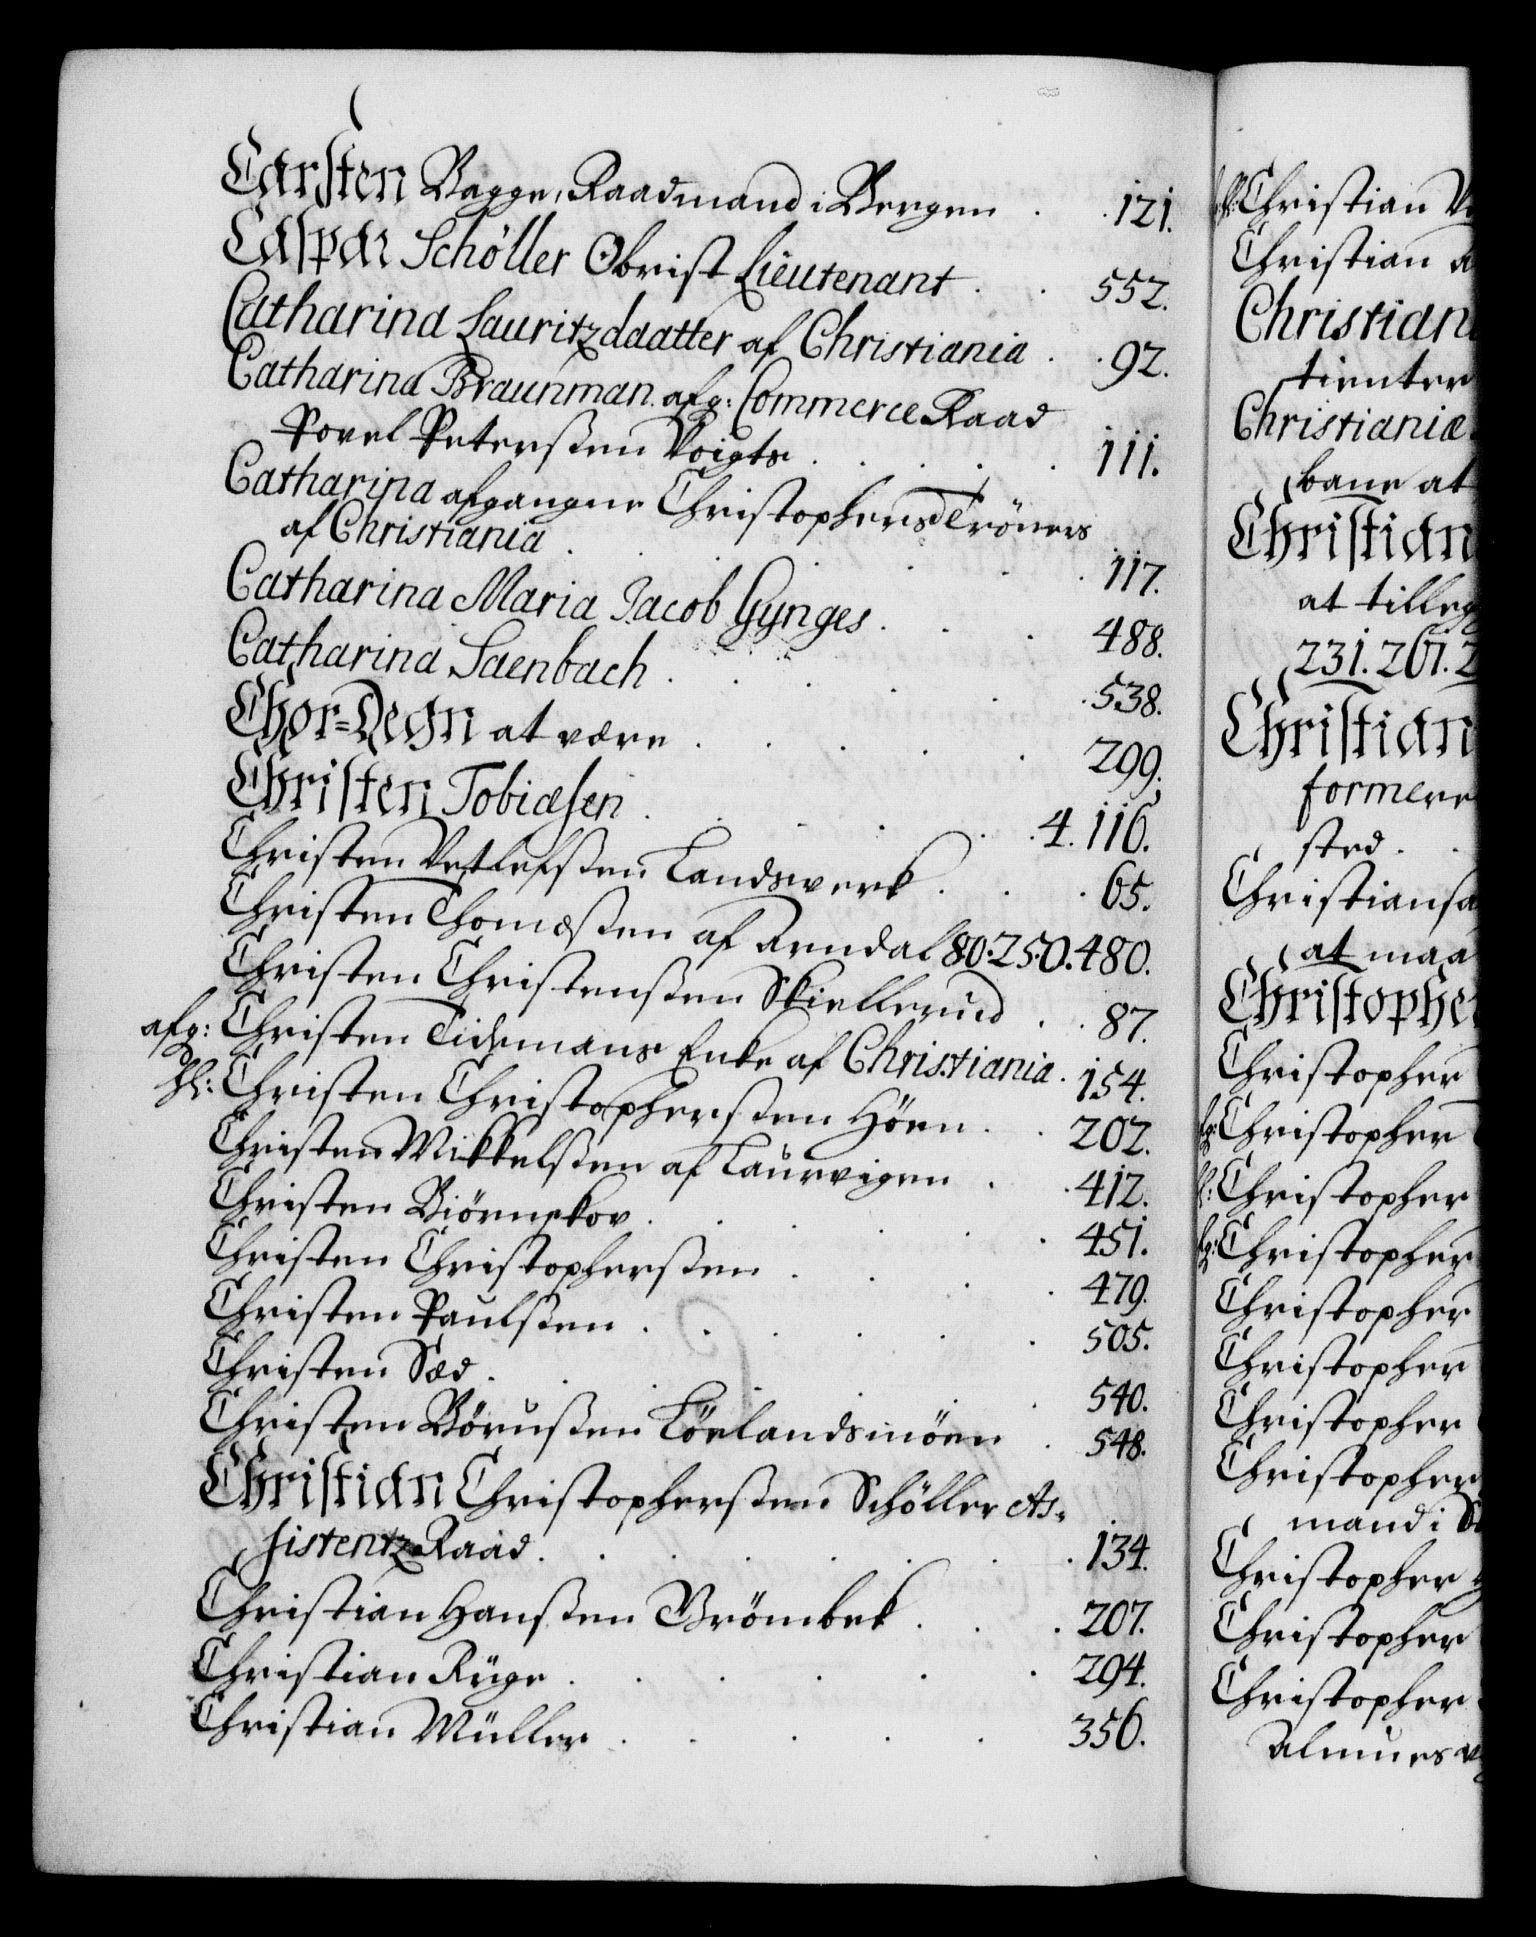 Carsten Bagge, Raadmand i Bergen . . 121.
Caspar Schøller Obrist Lieutenant . . 552.
Catharina Lauritzdaatter af Christiania . . 92.
Catharina Braunman. afg: Commerce Raad
Povel Peterssen Voigts . . . . . 111.
Catharina afgangne Christophers Trøners
af Christiania . . . . . 117.
Catharina Maria Jacob Gynges . . . 488.
Catharina Saenbach . . . . . 538.
Chor=Degn at være . . . . 299.
Christen Tobiæsen . . . . 4. 116.
Christen Detlefssen Landswerk . . . 65.
Christen Thomæssen af Arndal 80. 250. 480.
Christen Christenssen Skiellerud . . 87.
afg: Christen Tidemans Enke af Christiania . 154.
hl: Christen Christopherssen Höen . . 202.
Christen Mikkelssen af Laurvigen . . 412.
Christen Biörnskov . . . . 451.
Christen Christopherssen . . . . 479.
Christen Paulssen . . . . . 505.
Christen Sæd . . . . . 540.
Christen Börussen Löelandsmöen . 548.
Christian Christopherssen Schøller As=
sistentz Raad . . . . . 134.
Christian Hanssen Brömbek . . . 207.
Christian Ryge . . . . . 294.
Christian Müller . . . . 356.
Christian
Christian
Christian
tienter
Christianiæ
bane at
Christian
at tilleg
231. 261. 2
Christian
formere
sted . .
Christiansa
at maa
Christopher
Christopher
afg: Christopher
hl: Christopher
afg: Christopher
Christopher
Christopher
Christopher
Christopher
mand i
Christopher
Christopher
Christopher
Almues